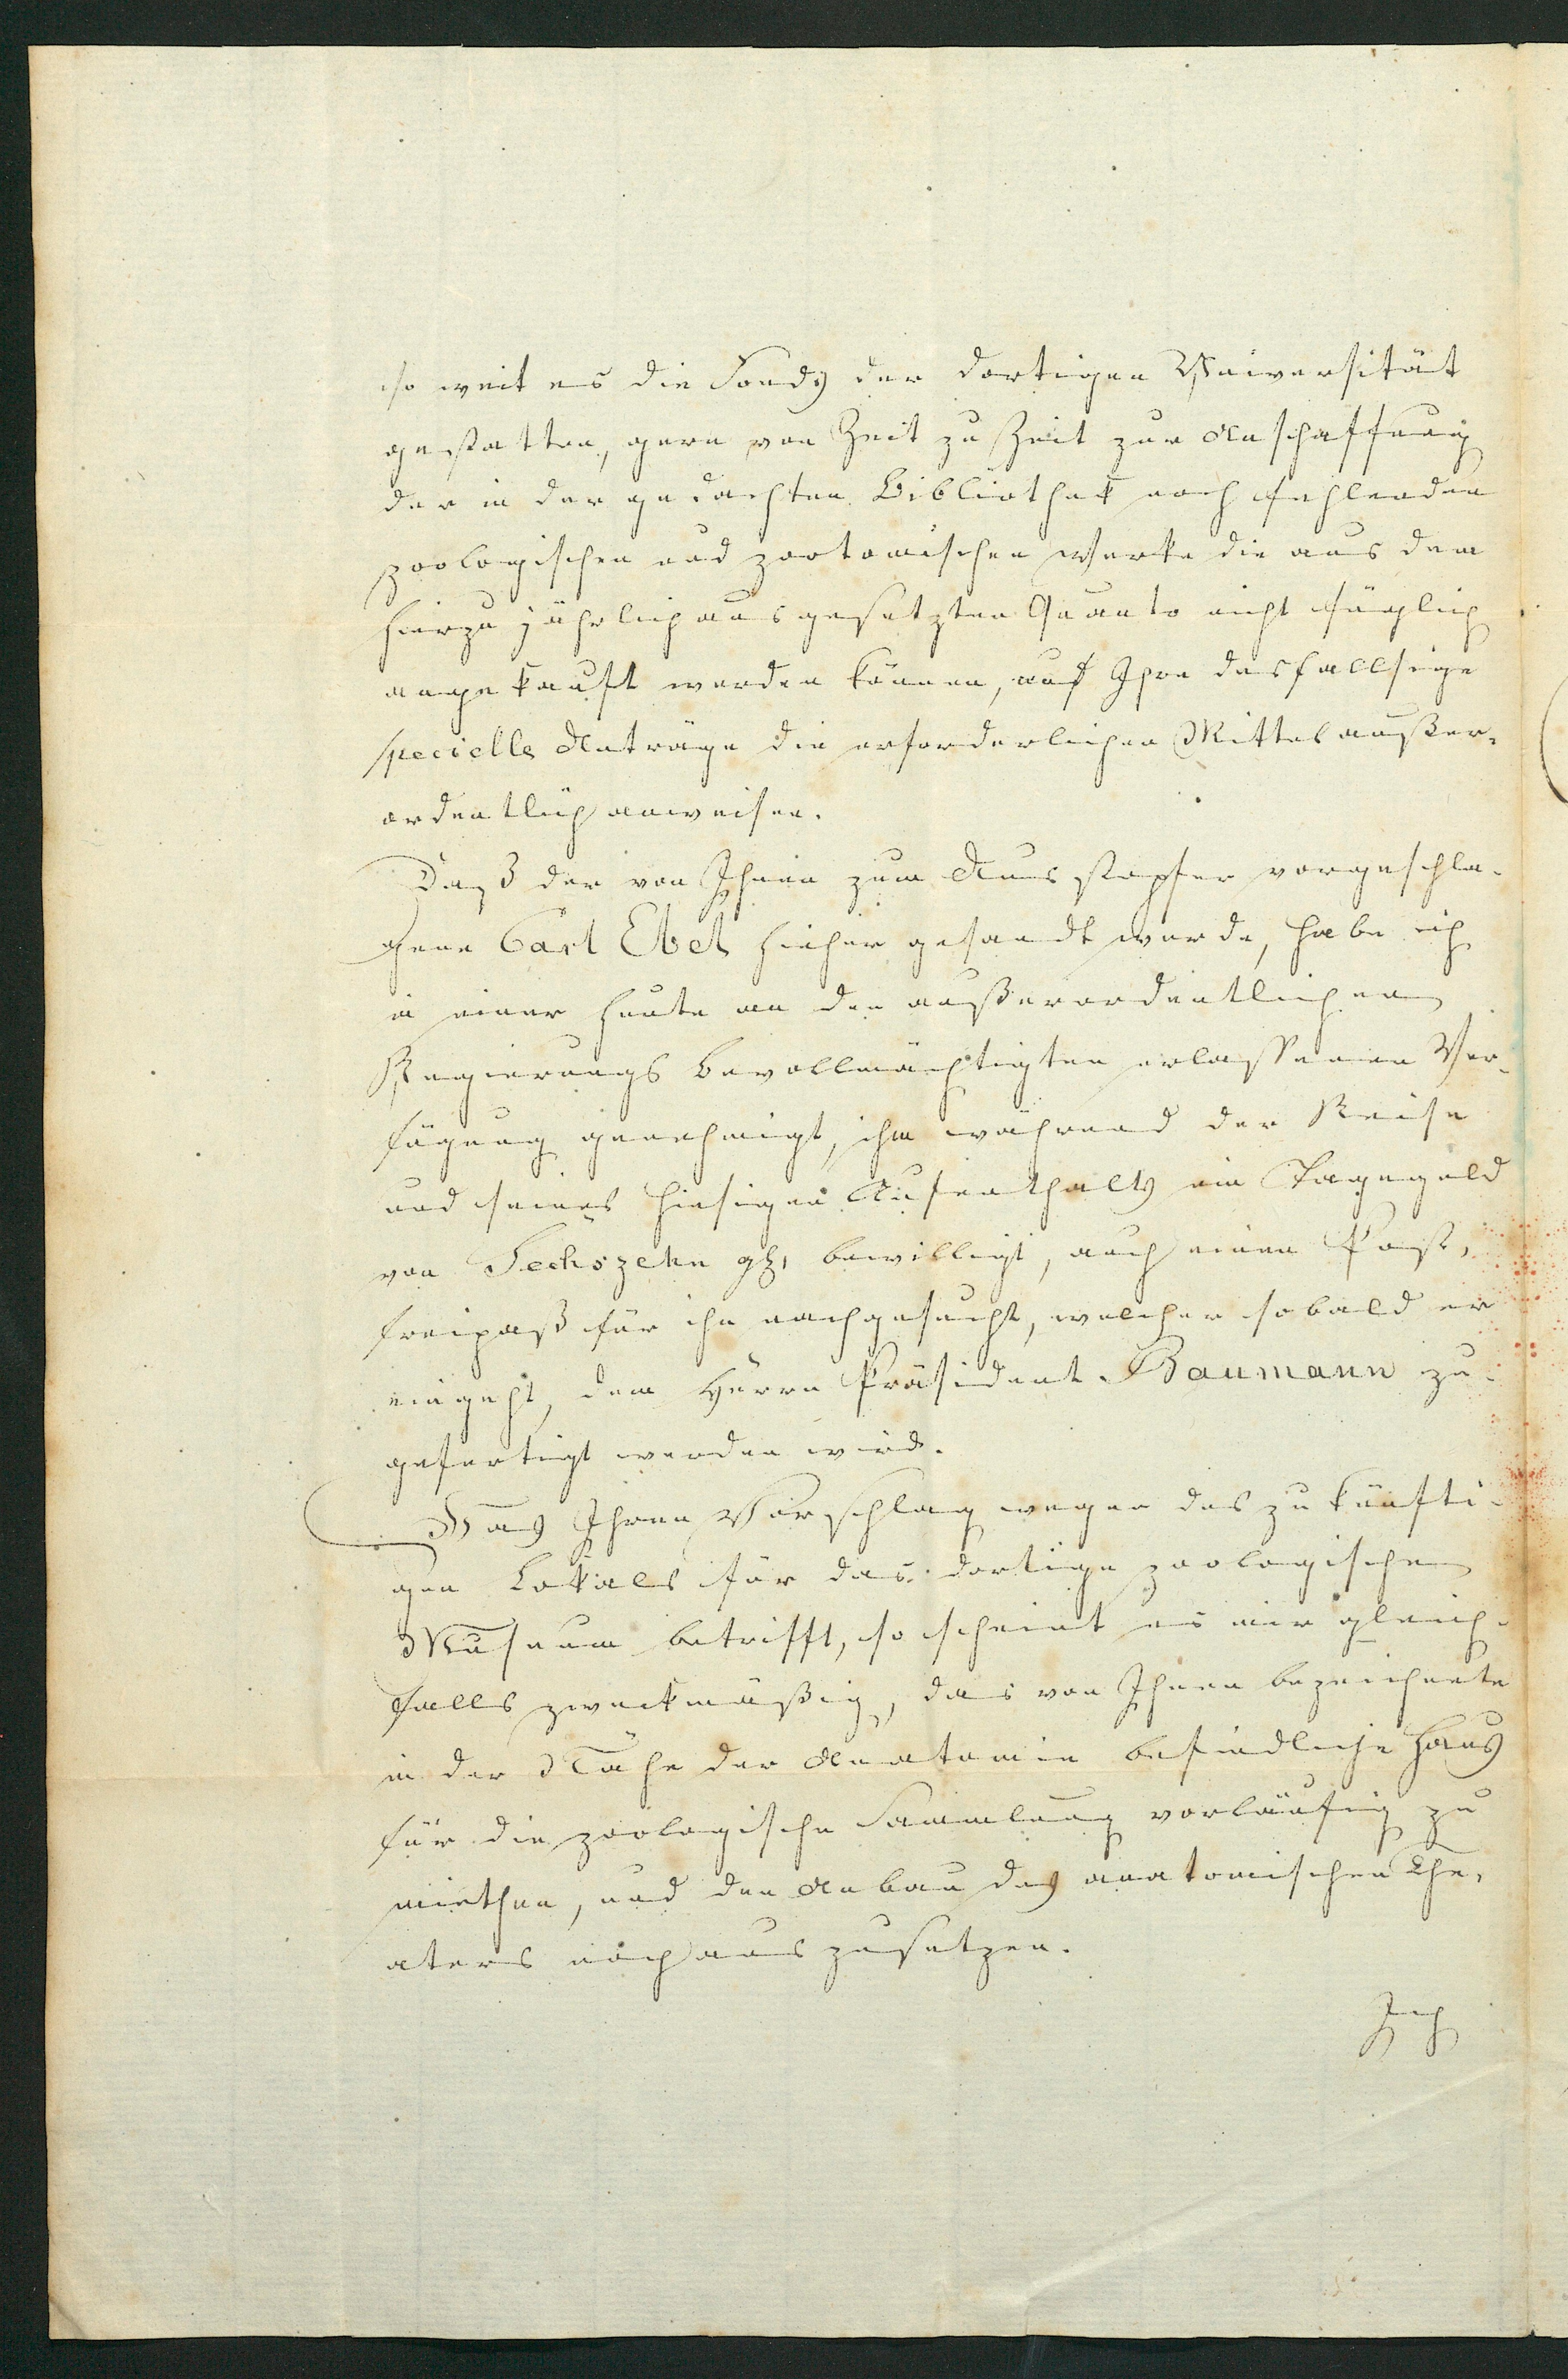 so weit es die Fonds der dortigen Universität
gestatten, gern von Zeit zu Zeit zur Anschaffung
der in der gedachten Bibliothek noch fehlenden
zoologischen und zootomischen Werke die aus dem
hierzu jährlich ausgesetzten Quanto nicht füglich
angekauft werden können, auf Ihre desfallsige
specielle Anträge die erforderlichen Mittel außer-
ordentlich anweisen.
Daß der von Ihnen zum Ausstopfer vorgeschla-
gene Carl Ebel hieher gesandt werde, habe ich
in einer heute an den außerordentlichen
Regierungs Bevollmächtigten erlassenen Ver-
fügung genehmigt, ihm während der Reise
und seines hiesigen Aufenthalts ein Tagegeld
von Sechszehn gl, bewilligt, auch einen Post-
freipaß für ihn nachgesucht, welcher sobald er
eingeht, dem Herrn Präsident Baumann zu-
gefertigt werden wird.
Was Ihren Vorschlag wegen des zukünfti-
gen Lokals für das dortige zoologischen
Museum betrifft, so scheint es mir gleich-
falls zweckmäßig, das von Ihnen bezeichnete
in der Nähe der Anatomie befindliche Haus
für die zoologische Sammlung vorläufig zu
miethen, und den Anbau des anatomischen The-
aters noch auszusetzen.
Ich